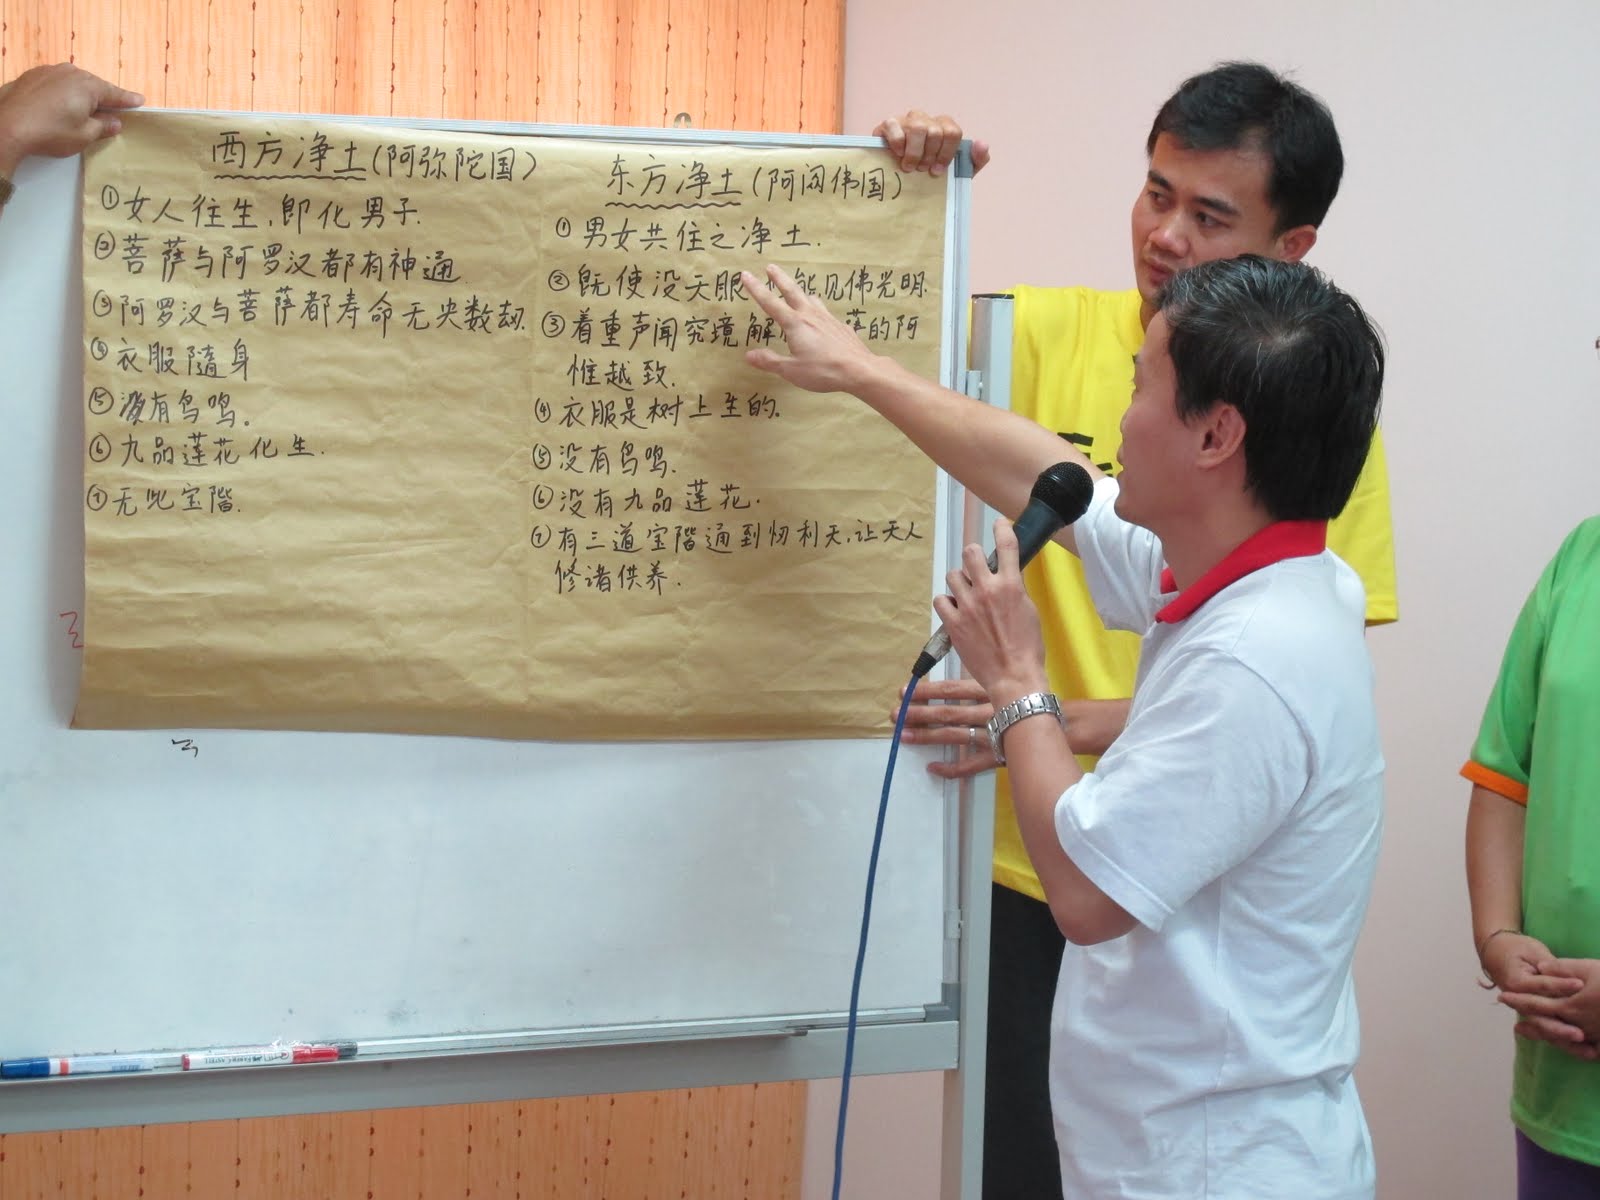 西方净土(阿弥陀国)
①女人往生,即化男子.
②菩萨与阿罗汉都有神通
③阿罗汉与菩萨都寿命无央数劫.
④衣服隨身
⑤没有鸟鸣。
⑥九品莲花化生.
⑦无此宝階.
东方净土(阿閦佛国)
①男女共住之净土.
②既使没天眼 能见佛光明.
③着重声闻究境解 的阿
惟越致.
④衣服是树上生的.
⑤没有鸟鸣.
⑥没有九品莲花.
⑦有三道宝階通到忉利天,让天人
修诸供养.